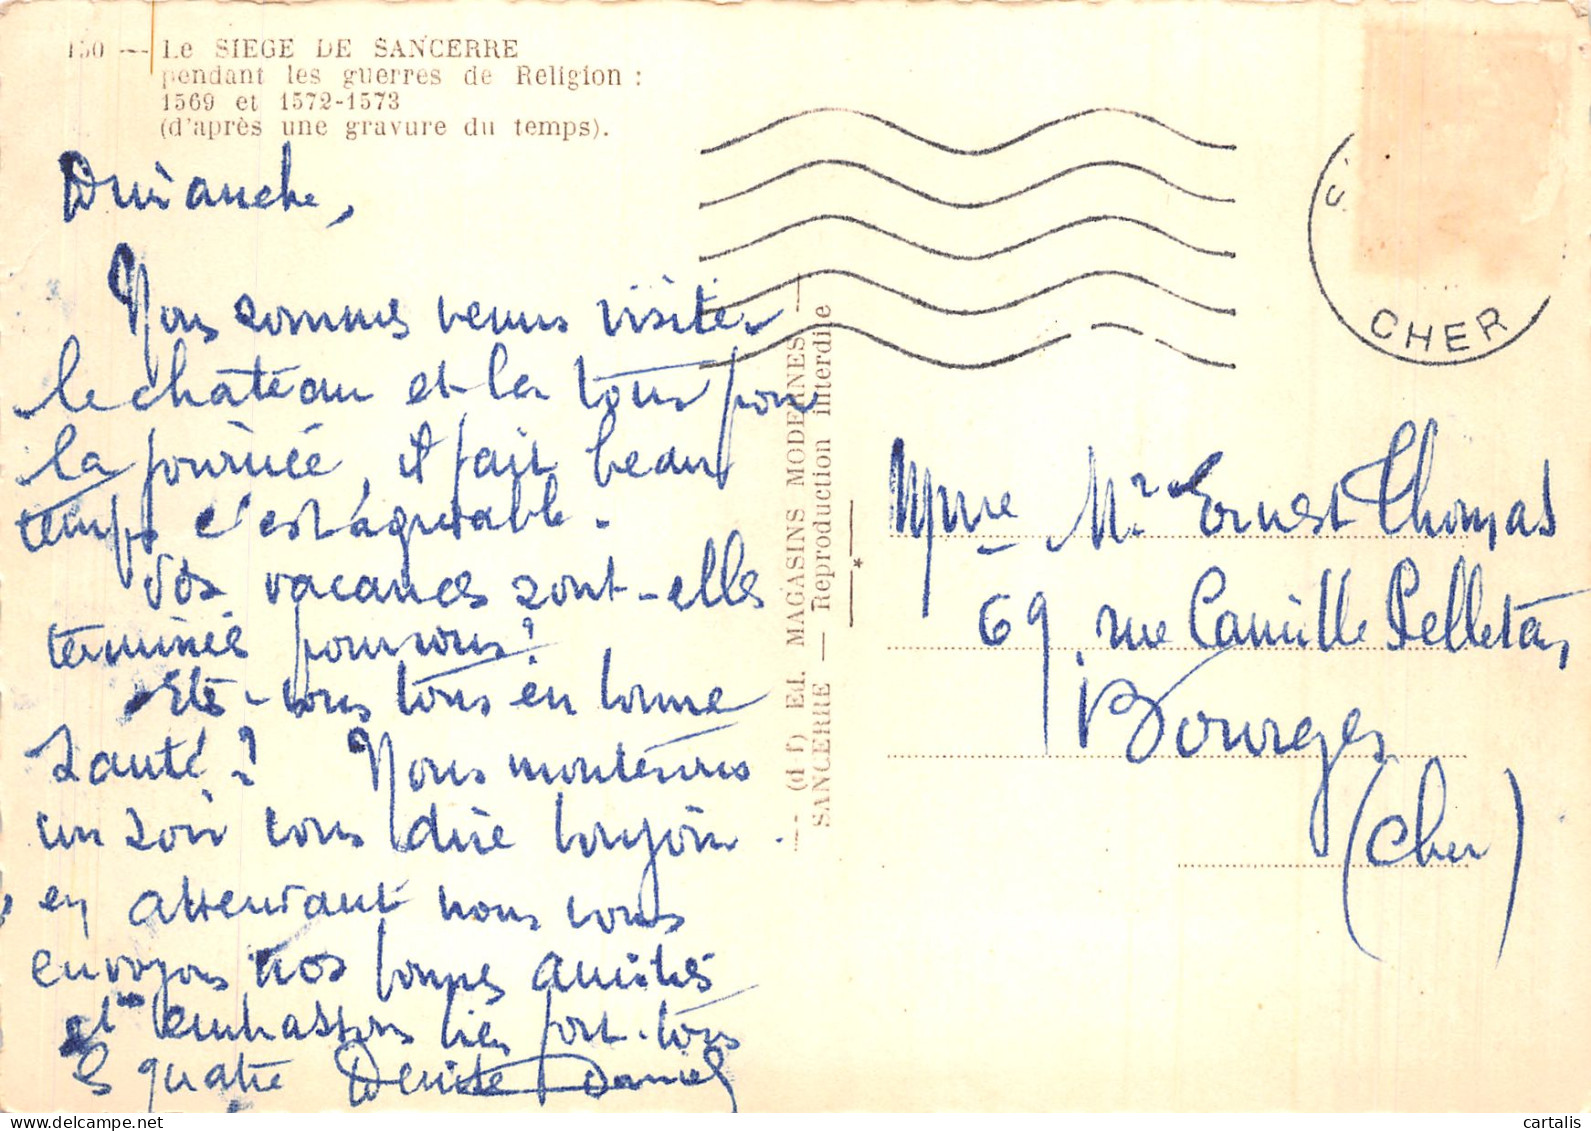 150 — Le SIEGE DE SANCERRE
pendant les guerres de Religion :
1569 et 1572-1573
(d'après une gravure du temps).
Dimanche,
Nous sommes venus visiter
le château et la tour pour
la journée, il fait beau
temps c'est agréable.
Vos vacances sont-elles
terminée pour vous ?
Etes-vous tous en bonne
santé ? Nous monterons
un soir vous dire bonjour.
en attendant nous vous
envoyons nos bonnes amitiés
et embrassons bien fort tous
les quatre Denise Daniel
(d-f) Ed. MAGASINS MODERNES —
SANCERRE — Reproduction interdite
CHER
Mme Mr Ernest Thomas
69, rue Camille Pelletan
Bourges
(Cher)
cartalis